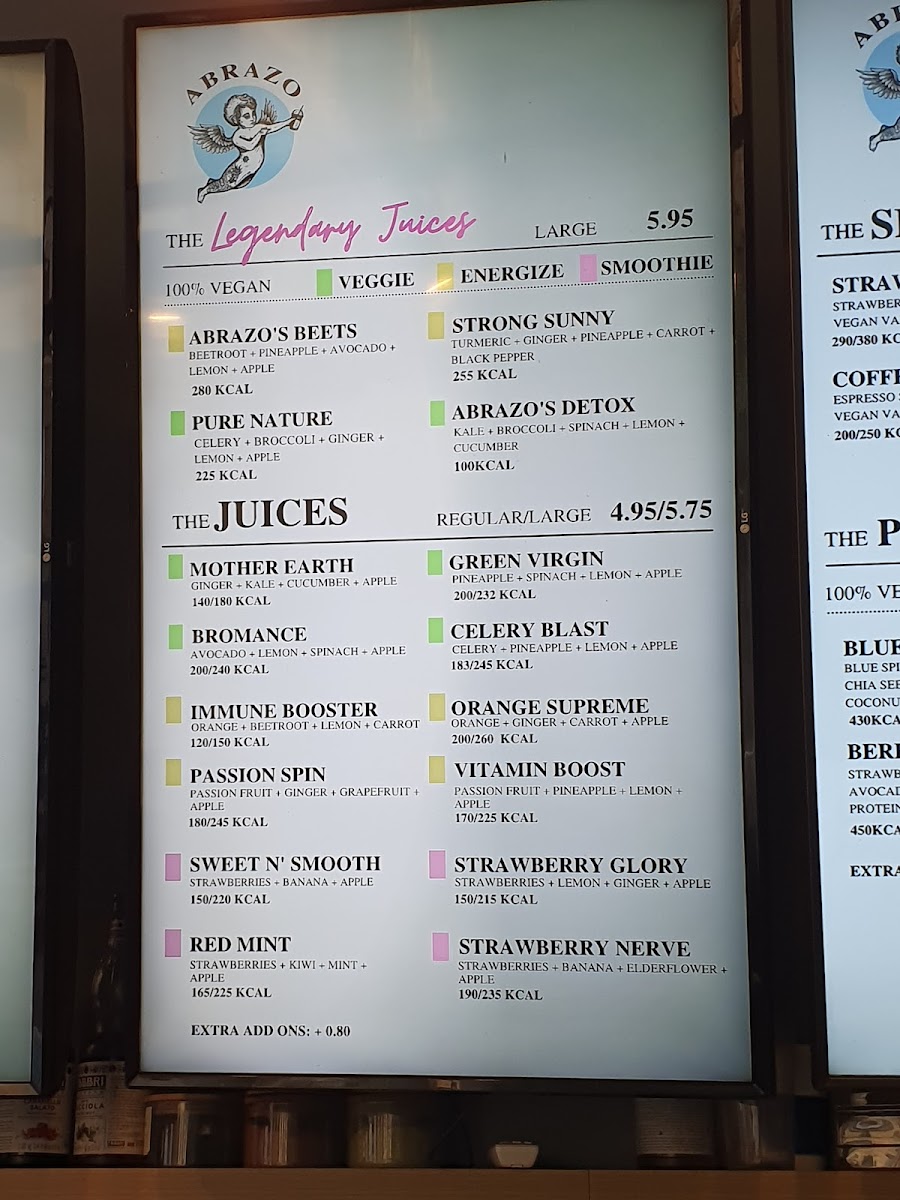 ABRAZO
THE Legendary Juices LARGE 5.95
100% VEGAN VEGGIE ENERGIZE SMOOTHIE
ABRAZO'S BEETS
BEETROOT + PINEAPPLE + AVOCADO +
LEMON + APPLE
280 KCAL
STRONG SUNNY
TURMERIC + GINGER + PINEAPPLE + CARROT +
BLACK PEPPER
255 KCAL
PURE NATURE
CELERY + BROCCOLI + GINGER +
LEMON + APPLE
225 KCAL
ABRAZO'S DETOX
KALE + BROCCOLI + SPINACH + LEMON +
CUCUMBER
100KCAL
THE JUICES REGULAR/LARGE 4.95/5.75
MOTHER EARTH
GINGER + KALE + CUCUMBER + APPLE
140/180 KCAL
GREEN VIRGIN
PINEAPPLE + SPINACH + LEMON + APPLE
200/232 KCAL
BROMANCE
AVOCADO + LEMON + SPINACH + APPLE
200/240 KCAL
CELERY BLAST
CELERY + PINEAPPLE + LEMON + APPLE
183/245 KCAL
IMMUNE BOOSTER
ORANGE + BEETROOT + LEMON + CARROT
120/150 KCAL
ORANGE SUPREME
ORANGE + GINGER + CARROT + APPLE
200/260 KCAL
PASSION SPIN
PASSION FRUIT + GINGER + GRAPEFRUIT +
APPLE
180/245 KCAL
VITAMIN BOOST
PASSION FRUIT + PINEAPPLE + LEMON +
APPLE
170/225 KCAL
SWEET N' SMOOTH
STRAWBERRIES + BANANA + APPLE
150/220 KCAL
STRAWBERRY GLORY
STRAWBERRIES + LEMON + GINGER + APPLE
150/215 KCAL
RED MINT
STRAWBERRIES + KIWI + MINT +
APPLE
165/225 KCAL
STRAWBERRY NERVE
STRAWBERRIES + BANANA + ELDERFLOWER +
APPLE
190/235 KCAL
EXTRA ADD ONS: + 0.80
LG
LG
THE
VEGAN
290/380
ESPRESSO
VEGAN
200/250
THE
100%
BLUE
CHIA